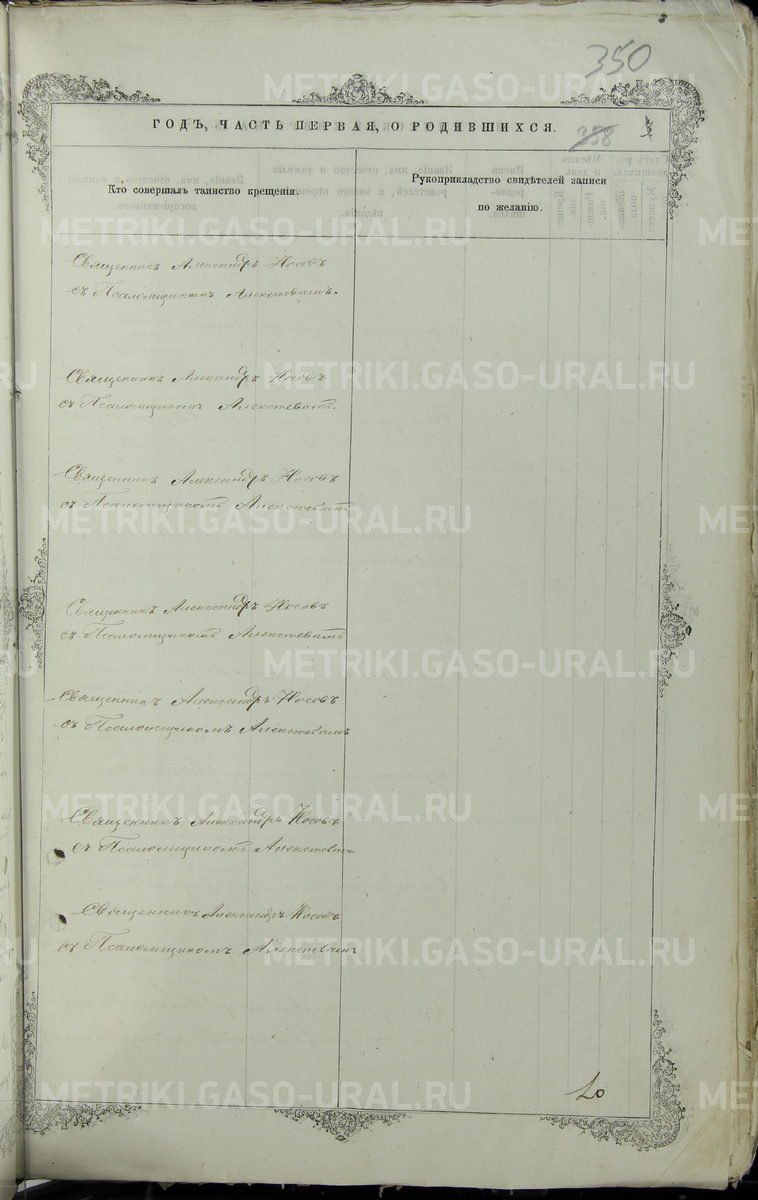 350
ГОДЪ, ЧАСТЬ ПЕРВАЯ, О РОДИВШИХСЯ.
358
Кто совершалъ таинство крещенія.
Рукоприкладство свидѣтелей записи
по желанію.
Священникъ Александръ Носовъ
съ Псаломщикомъ Алексѣевымъ.
Священникъ Александръ Носовъ
съ Псаломщикомъ Алексѣевымъ.
Священникъ Александръ Носовъ
съ Псаломщикомъ Алексѣевымъ
Священникъ Александръ Носовъ
съ Псаломщикомъ Алексѣевымъ
Священникъ Александръ Носовъ
съ Псаломщикомъ Алексѣевымъ
Священникъ Александръ Носовъ
съ Псаломщикомъ Алексѣевымъ
Священникъ Александръ Носовъ
съ Псаломщикомъ Алексѣевымъ
METRIKI.GASO-URAL.RU